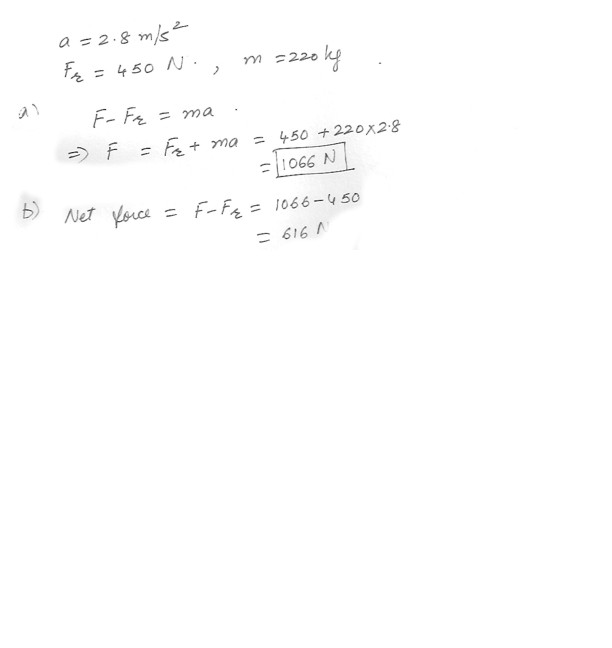 a = 2.8 m/s²
Fr = 450 N. , m = 220 kg .
a) F - Fr = ma .
=> F = Fr + ma = 450 + 220 x 2.8
= 1066 N
b) Net force = F - Fr = 1066 - 450
= 616 N